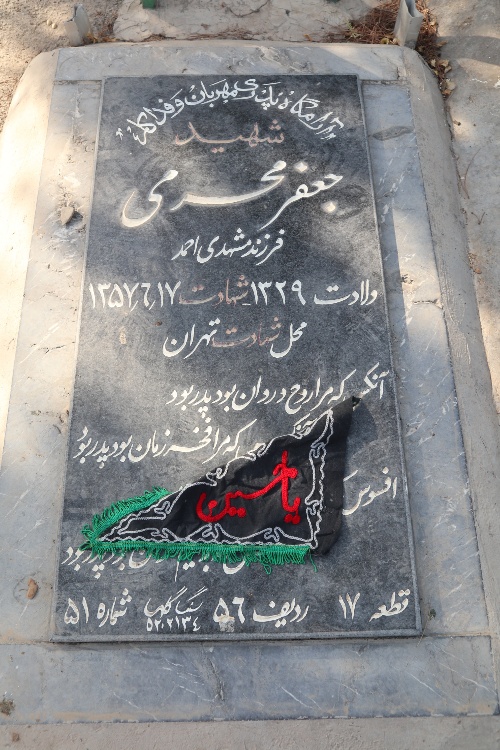 آرامگاه پدری مهربان و فداکار
شهید
جعفر محرمی
فرزند مشهدی احمد
ولادت ۱۳۲۹ـ شهادت ۱۳۵۷٫۶٫۱۷
محل شهادت تهران
آنکس که مرا روح و روان بود پدر بود
که مرا فخر زمان بود پدر بود
افسوس
یا حسین
بود
قطعه ۱۷ ردیف ۵۶ شماره ۵۱